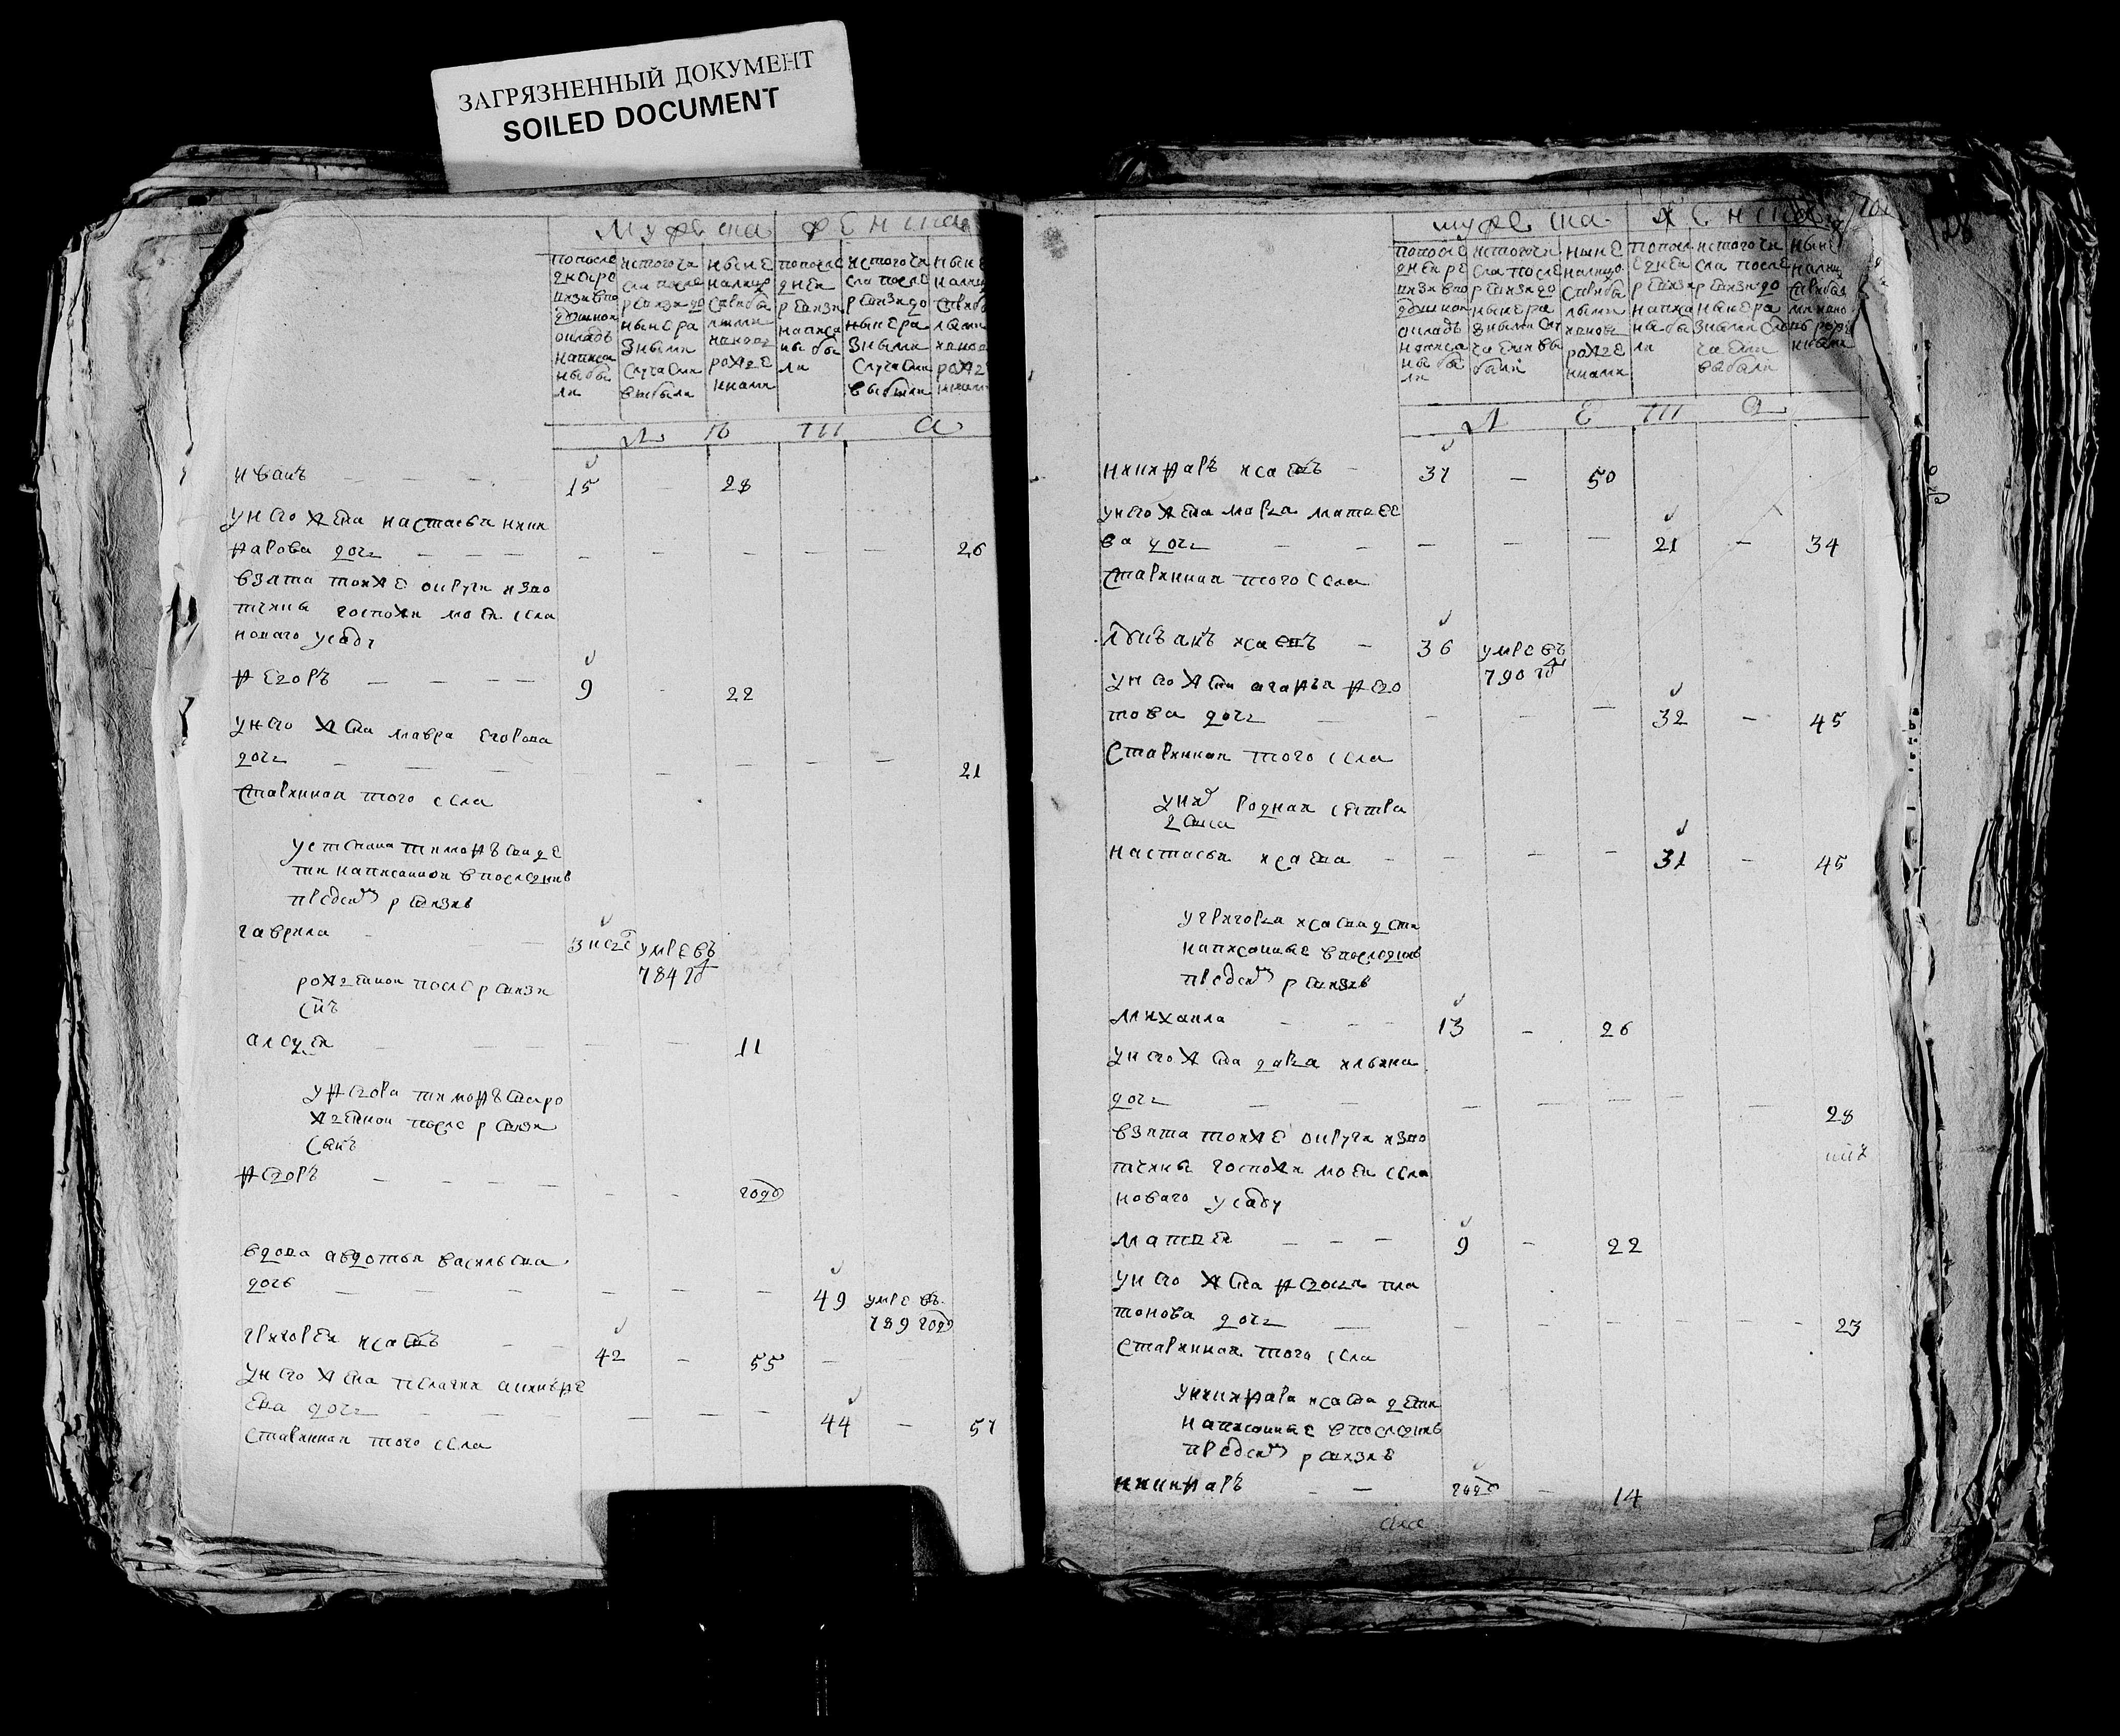 ЗАГРЯЗНЕННЫЙ ДОКУМЕНТ
SOILED DOCUMENT
мужеска женска
по последней ревизии в подушном окладе написаны были
ис того числа после ревизии до ныне разными случаями выбыли
ныне на лицо с прибылыми и вновь рожденными
по последней ревизии написаны были
ис того числа после ревизии до ныне разными случаями выбыли
ныне на лицо с прибылыми и вновь рожденными
л ѣ т а
иванъ 15 — 28
у него жена настасья ники
фарова дочь — — — — — 26
взята той же округи из во
тчины госпожи моей села
новаго усаду
федоръ 9 - 22
у него жена мавра егорова
дочь — — — — — 21
старинная того села
у степана тимофѣева де
ти написанной в последнѣ
пред сим ревизиѣ
гаврила - — умре въ
784 год
рожденной после ревизи
сынъ
алеѯей — — — — 11
у федора тимофѣева ро
жденной после ревизи
сынъ
федоръ — — — — - - годъ
вдова авдотья васильева
дочь — — — — — 49 умре въ
789 годъ
григорей исаевъ — 42 — 55 — —
у него жена пелагея аникѣе
ева дочь — — — — — 44 — 57
старинная того села
128
мужеска женска
по последней ревизии в подушном окладе написаны были
ис того числа после ревизии до ныне разными случаями выбыли
ныне на лицо с прибылыми и вновь рожденными
по последней ревизии написаны были
ис того числа после ревизии до ныне разными случаями выбыли
ныне на лицо с прибылыми и вновь рожденными
л е т а
никифаръ исаевъ — 37 — 50
у него жена марья матвее
ва дочь — — — — — 21 — 34
старинная того села
исаевъ — 36 умре въ
790 год
у него жена агафья фео
това дочь — — — — 32 — 45
старинная того села
у них родная сестра
настасья исаева — — — — 31 — 45
у григорья исаева дети
написанные в последнѣ
пред сим ревизиѣ
михаила — — — 13 - 26
у него жена дарья ильина
дочь — — — — — — — 28
взята той же округи из во
тчины госпожи моей села
новаго усаду
матвей — — — 9 - 22
у него жена федосья пла
тонова дочь — — — — — — — 23
старинная того села
у никифара исаева дети
написанные в последнѣ
пред сим ревизие
никифаръ — — годъ — 14